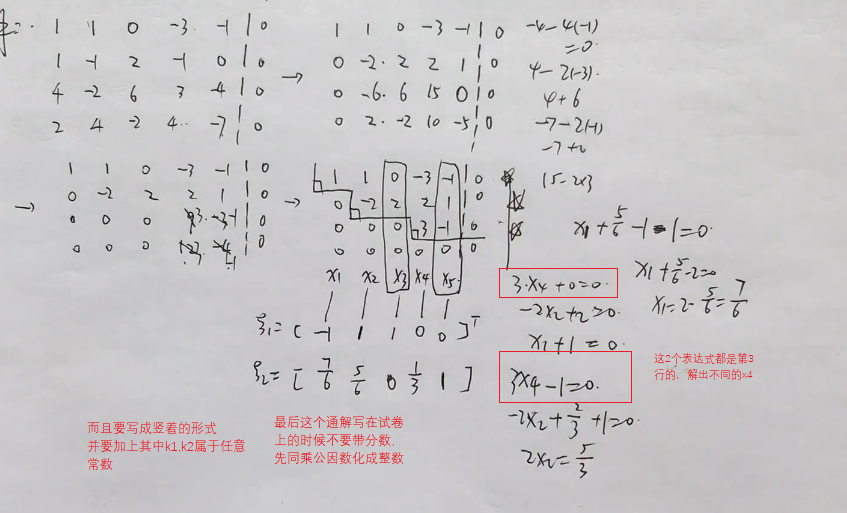 1 1 0 -3 -1 | 0
1 -1 2 -1 0 | 0
4 -2 6 3 -4 | 0
2 4 -2 4 -7 | 0
→
1 1 0 -3 -1 | 0
0 -2 2 2 1 | 0
0 -6 6 15 0 | 0
0 2 -2 10 -5 | 0
-4-4(-1)
=0
4-2(-3)
4+6
-7-2(-1)
15-2×3
→
1 1 0 -3 -1 | 0
0 -2 2 2 1 | 0
0 0 0 3 -1 | 0
0 0 0 3 -1 | 0
→
1 1 0 -3 -1 | 0
0 -2 2 2 1 | 0
0 0 0 3 -1 | 0
0 0 0 0 0 | 0
x1 x2 x3 x4 x5
ξ1=[ -1 1 1 0 0 ]T
ξ2=[ 7/6 5/6 0 1/3 1 ]
3·x4+0=0
-2x2+2=0
x1+1=0
3x4-1=0
-2x2+2/3+1=0
2x2=5/3
x1+5/6-1-1=0
x1+5/6-2=0
x1=2-5/6=7/6
这2个表达式都是第3
行的，解出不同的x4
而且要写成竖着的形式
并要加上其中k1,k2属于任意
常数
最后这个通解写在试卷
上的时候不要带分数，
先同乘公因数化成整数